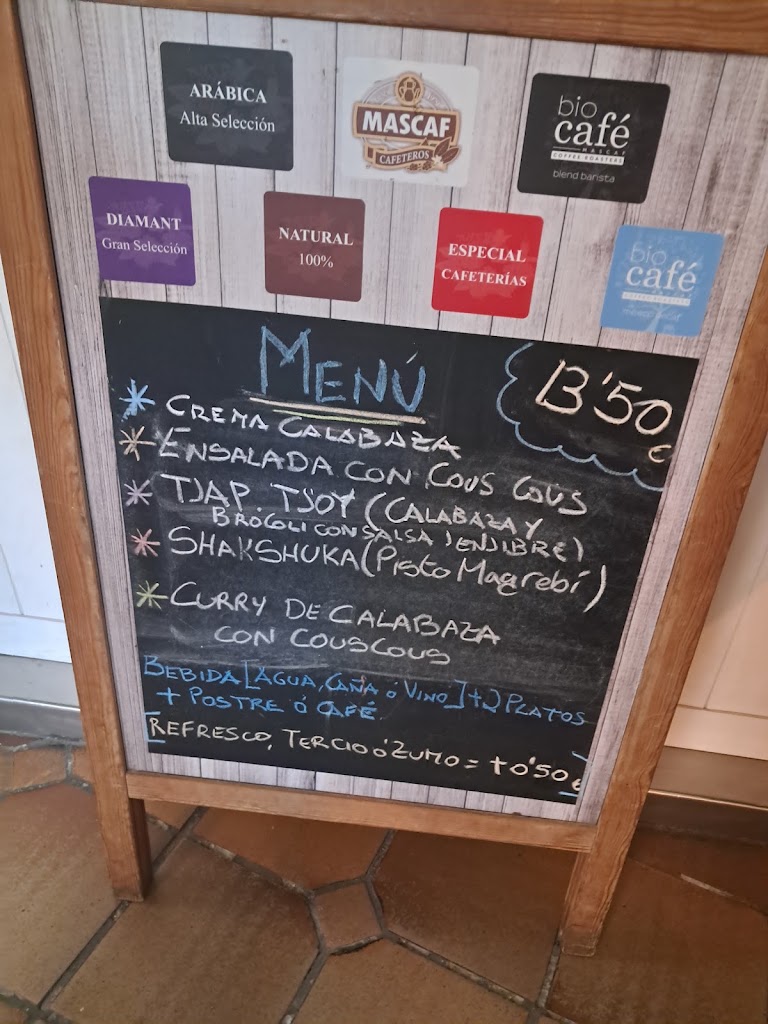 ARÁBICA
Alta Selección
MASCAF
CAFETEROS
bio
café
MASCAF
COFFEE ROASTERS
blend barista
DIAMANT
Gran Selección
NATURAL
100%
ESPECIAL
CAFETERÍAS
bio
café
MENÚ
13'50
€
* CREMA CALABAZA
* ENSALADA CON COUS COUS
* TJAP. TJOY (CALABAZA Y
BROCOLI CON SALSA JENJIBRE)
* SHAKSHUKA (PISTO MAGREBÍ)
* CURRY DE CALABAZA
CON COUSCOUS
BEBIDA [AGUA, CAÑA ó VINO] + 2 PLATOS
+ POSTRE ó CAFÉ.
[REFRESCO, TERCIO ó ZUMO = + 0'50 €]